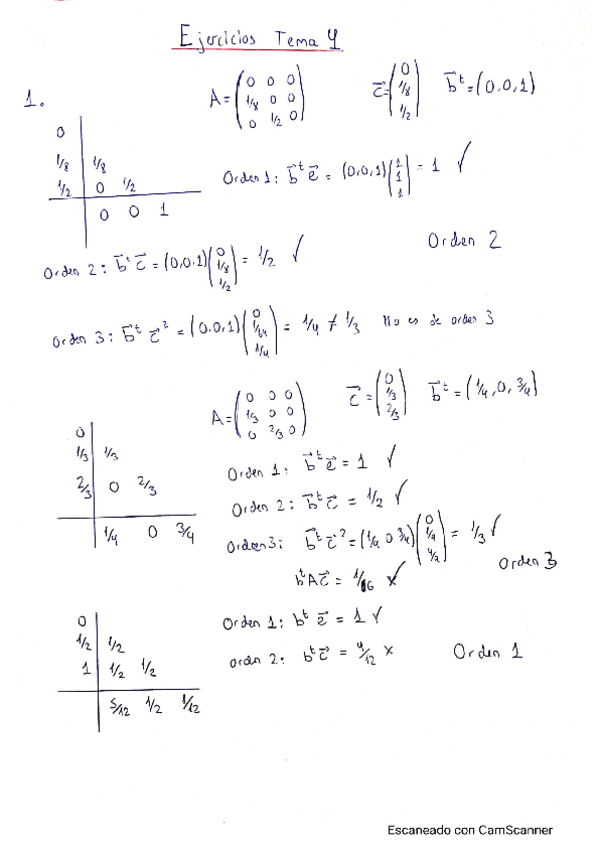 Ejercicios Tema 4
1.
A = (0 0 0; 1/8 0 0; 0 1/2 0) c⃗ = (0; 1/8; 1/2) b⃗ᵗ = (0,0,1)
0
1/8 | 1/8
1/2 | 0 1/2
0 0 1
Orden 1: b⃗ᵗ e⃗ = (0,0,1)(1; 1; 1) = 1 ✓
Orden 2: b⃗ᵗ c⃗ = (0,0,1)(0; 1/8; 1/2) = 1/2 ✓ Orden 2
Orden 3: b⃗ᵗ c⃗² = (0,0,1)(0; 1/64; 1/4) = 1/4 ≠ 1/3 No es de orden 3
A = (0 0 0; 1/3 0 0; 0 2/3 0) c⃗ = (0; 1/3; 2/3) b⃗ᵗ = (1/4, 0, 3/4)
0
1/3 | 1/3
2/3 | 0 2/3
1/4 0 3/4
Orden 1: b⃗ᵗ e⃗ = 1 ✓
Orden 2: b⃗ᵗ c⃗ = 1/2 ✓
Orden 3: b⃗ᵗ c⃗² = (1/4 0 3/4)(0; 1/9; 4/9) = 1/3 ✓
bᵗAc⃗ = 1/6 Orden 3
0
1/2 | 1/2
1 | 1/2 1/2
5/12 1/2 1/12
Orden 1: bᵗ e⃗ = 1 ✓
orden 2: bᵗ c⃗ = 4/12 × Orden 1
Escaneado con CamScanner